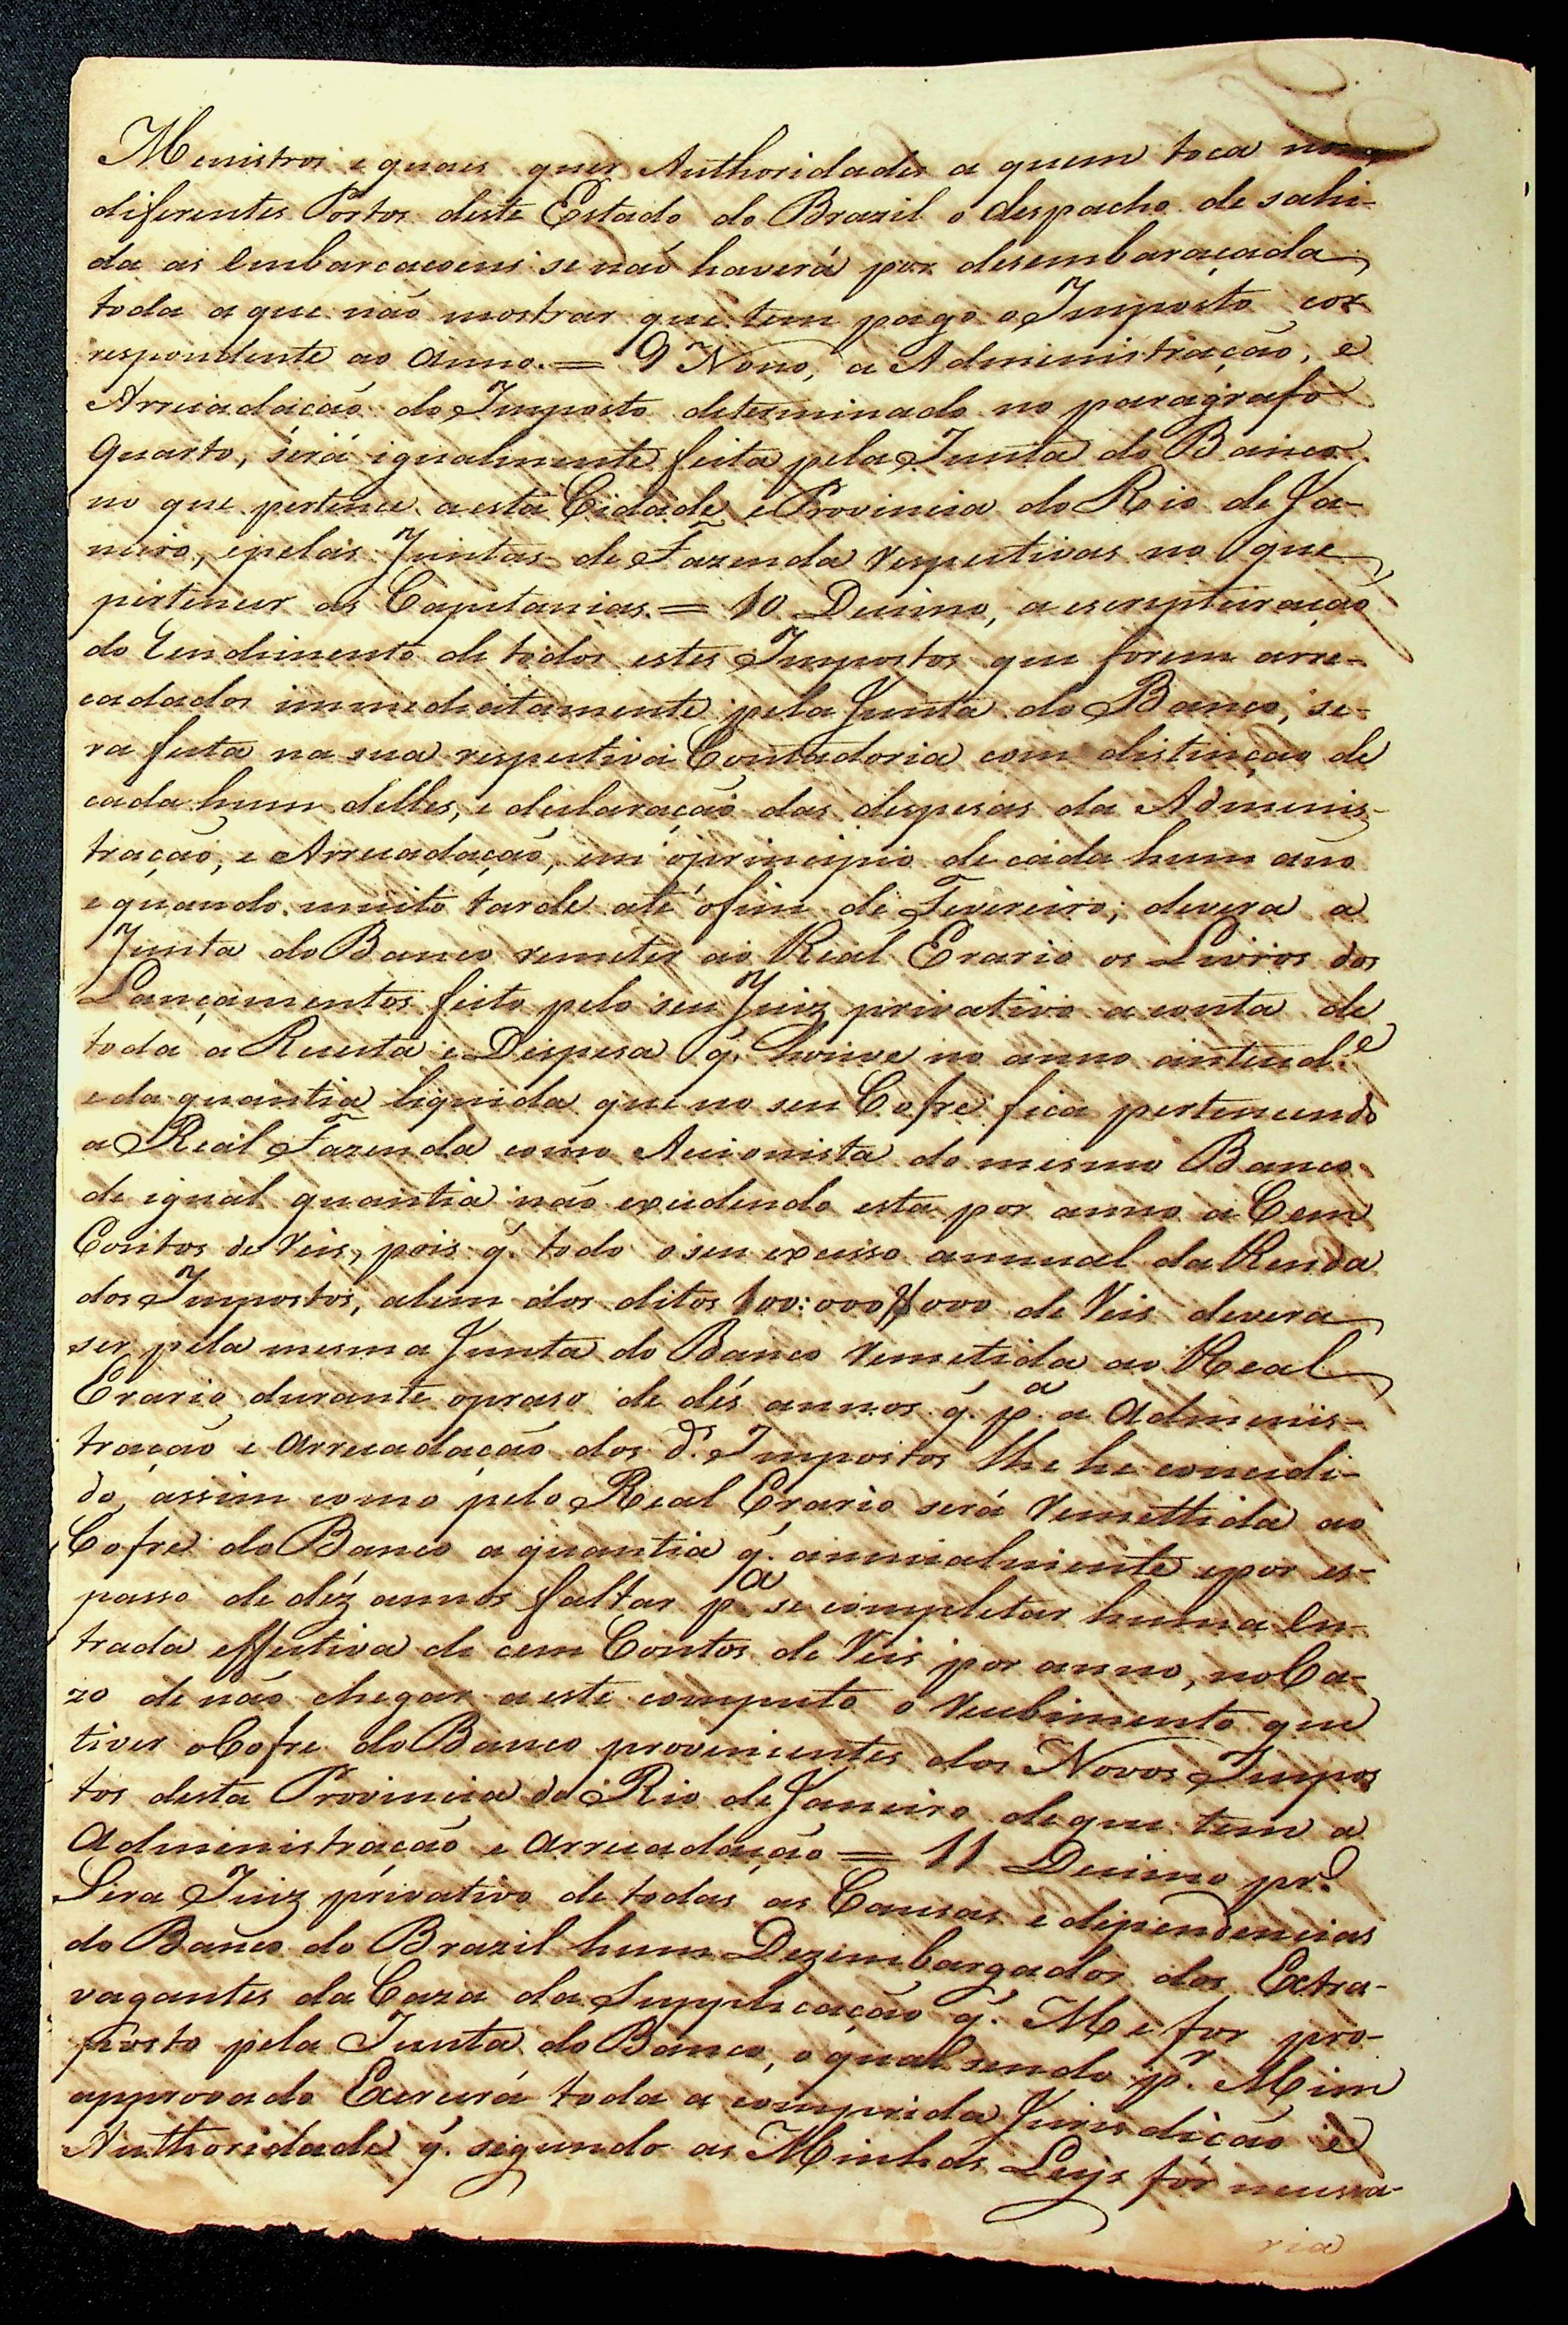 Menistros e quaes quer Authoridades a quem toca nos
diferentes Portos deste Estado do Brazil o despacho de sahi-
da as Embarcacoens se naõ haverá por desembaraçada
toda a que não mostrar que tem pago o Imposto cor
respondente ao Anno. = 9 Nono, a Administração, e
Arrecadacáo do Imposto determinado no paragrafo
Quarto, será igualmente feita pela Junta do Banco
no que pertence a esta Cidade e Provincia do Rio de Ja-
neiro, e pelas Juntas de Fazenda respectivas no que
pertencer as Capitanias. = 10 Decimo, a escrepturação
do Rendimento de todos estes Impostos que forem arre-
cadados immediatamente pela Junta do Banco, se-
ra feita na sua respectiva Contadoria com distinção de
cada hum delles, e declaração das despesas da Adminis-
tração, e Arrecadação, em o principio de cada hum ano
e quando muito tarde até o fim de Fevereiro; devera a
Junta do Banco remeter ao Real Erario os Livros dos
Lançamentos feito pelo seu Juiz privativo a conta de
toda a Receita e Despesa q. houve no anno anteced.e
e da quantia liquida que no seu Cofre fica pertencendo
a Real Fazenda como Acionista do mesmo Banco
de igual quantia não excedendo esta por anno a Cem
Contos de reis, pois q. todo o seu excesso annual da Renda
dos Impostos, alem dos ditos 100:000$000 de reis devera
ser pela mesma Junta do Banco remetida ao Real
Erario durante o praso de dés annos q. p.a a Adminis-
tração e Arrecadação dos d.s Impostos lhe he concedi-
do, assim como pelo Real Erario será remettida ao
Cofre do Banco a quantia q. annualmente e por es-
passo de déz annos faltar p.a se completar huma En-
trada effectiva de cem Contos de reis por anno, no Ca-
zo de não chegar a este computo o recebimento que
tiver o Cofre do Banco provenientes dos Novos Impos
tos desta Provincia do Rio de Janeiro de que tem a
Administração e Arrecadação = 11 Decimo pr.o
Sera Juiz privativo de todas as Causas e dependencias
do Banco do Brazil hum Dezembargador dos Extra-
vagantes da Caza da Supplicação q. Me for pro-
posto pela Junta do Banco, o qual sendo p.r Mim
approvado Exercerá toda a comprida Jurisdicão e
Authoridade q. segundo as Minhas Leys for necessa-
ria